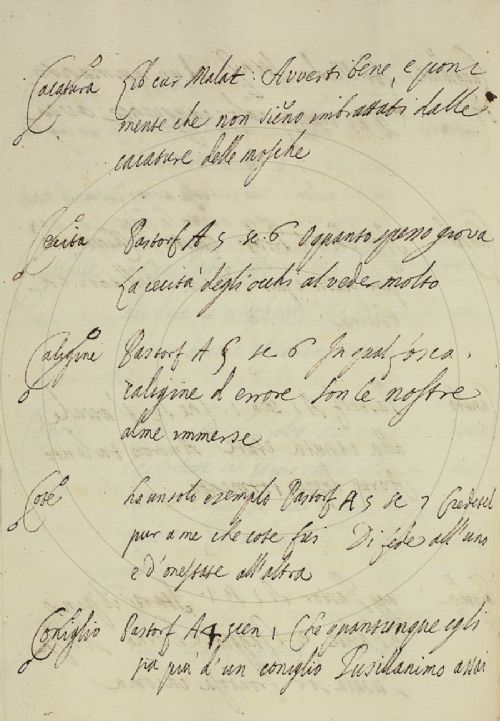 Cacatura Lib cur Malat: Avverti bene, e pon
mente che non sieno imbrattati dalle
cacature delle mosche
Cecita Pastorf A 5 se 6 O quanto spesso giova
La cecità degl'occhi al veder molto
Caligine Pastorf A 5 se 6 In qual
caligine d errore son le nostre
alme immerse
Cote ha un solo ezemplo Pastorf A 5 se
pur a me che cote fui Di fede all'uno
e d'onestate all'altra
Coniglio Pastorf A 4 scen 1 Che quantunque egli
sia più d'un coniglio Pusillanimo assai